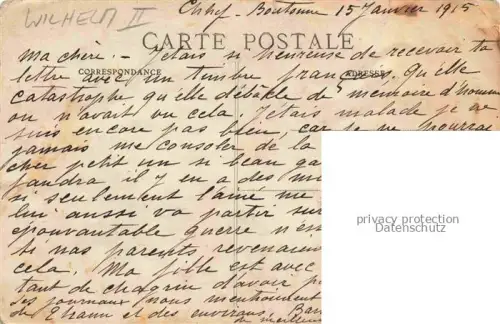 WILHELM II
Chef-Boutonne 15 Janvier 1915
CARTE POSTALE
CORRESPONDANCE
ADRESSE
Ma chère :- J'étais si heureuse de recevoir ta
lettre avec un timbre français. Qu'elle
catastrophe qu'elle débâcle de mémoire d'homme
on n'avait vu cela. J'étais malade je ne
suis encore pas bien, car je ne pourrai
jamais me consoler de la
cher petit un si beau ga
faudra il y en a des mi
si seulement l'ainé me
lui aussi va partir sur
épouvantable guerre n'es
si nos parents revenaien
cela. Ma fille est avec
tant de chagrin d'avoir p
Les journaux nous mentionnent
de Thann et des environs. Bar
de meilleur
privacy protection
Datenschutz